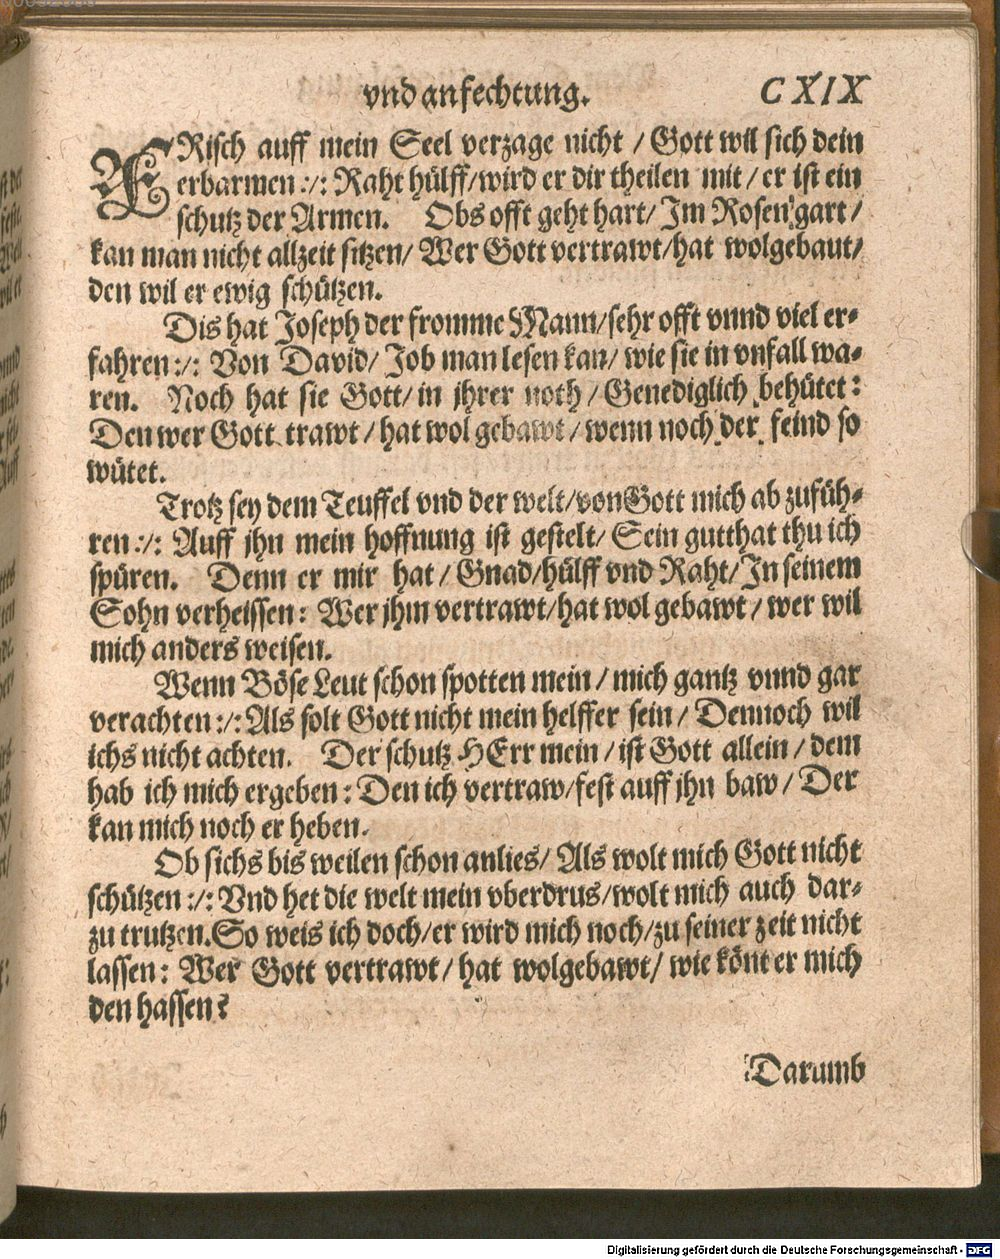 vnd anfechtung. CXIX
FRisch auff mein Seel verzage nicht / Gott wil sich dein
erbarmen :/: Raht hülff/wird er dir theilen mit / er ist ein
schutz der Armen. Obs offt geht hart/ Im Rosen gart /
kan man nicht allzeit sitzen/ Wer Gott vertrawt/hat wolgebaut/
den wil er ewig schützen.
Dis hat Joseph der fromme Mann/sehr offt vnnd viel er-
fahren :/: Von David/ Job man lesen kan/ wie sie in vnfall wa-
ren. Noch hat sie Gott/ in jhrer noth / Genediglich behütet:
Den wer Gott trawt / hat wol gebawt / wenn noch der feind so
wütet.
Trotz sey dem Teuffel vnd der welt/von Gott mich ab zufüh-
ren :/: Auff jhn mein hoffnung ist gestelt/ Sein gutthat thu ich
spüren. Denn er mir hat / Gnad/hülff vnd Raht/ In seinem
Sohn verheissen: Wer jhm vertrawt/hat wol gebawt / wer wil
mich anders weisen.
Wenn Böse Leut schon spotten mein / mich gantz vnnd gar
verachten :/: Als solt Gott nicht mein helffer sein / Dennoch wil
ichs nicht achten. Der schutz HErr mein / ist Gott allein / dem
hab ich mich ergeben: Den ich vertraw/fest auff jhn baw / Der
kan mich noch er heben.
Ob sichs bis weilen schon anlies/ Als wolt mich Gott nicht
schützen :/: Vnd het die welt mein vberdrus/wolt mich auch dar-
zu trutzen. So weis ich doch/er wird mich noch/zu seiner zeit nicht
lassen: Wer Gott vertrawt / hat wolgebawt/ wie könt er mich
den hassen?
Darumb
Digitalisierung gefördert durch die Deutsche Forschungsgemeinschaft - DFG